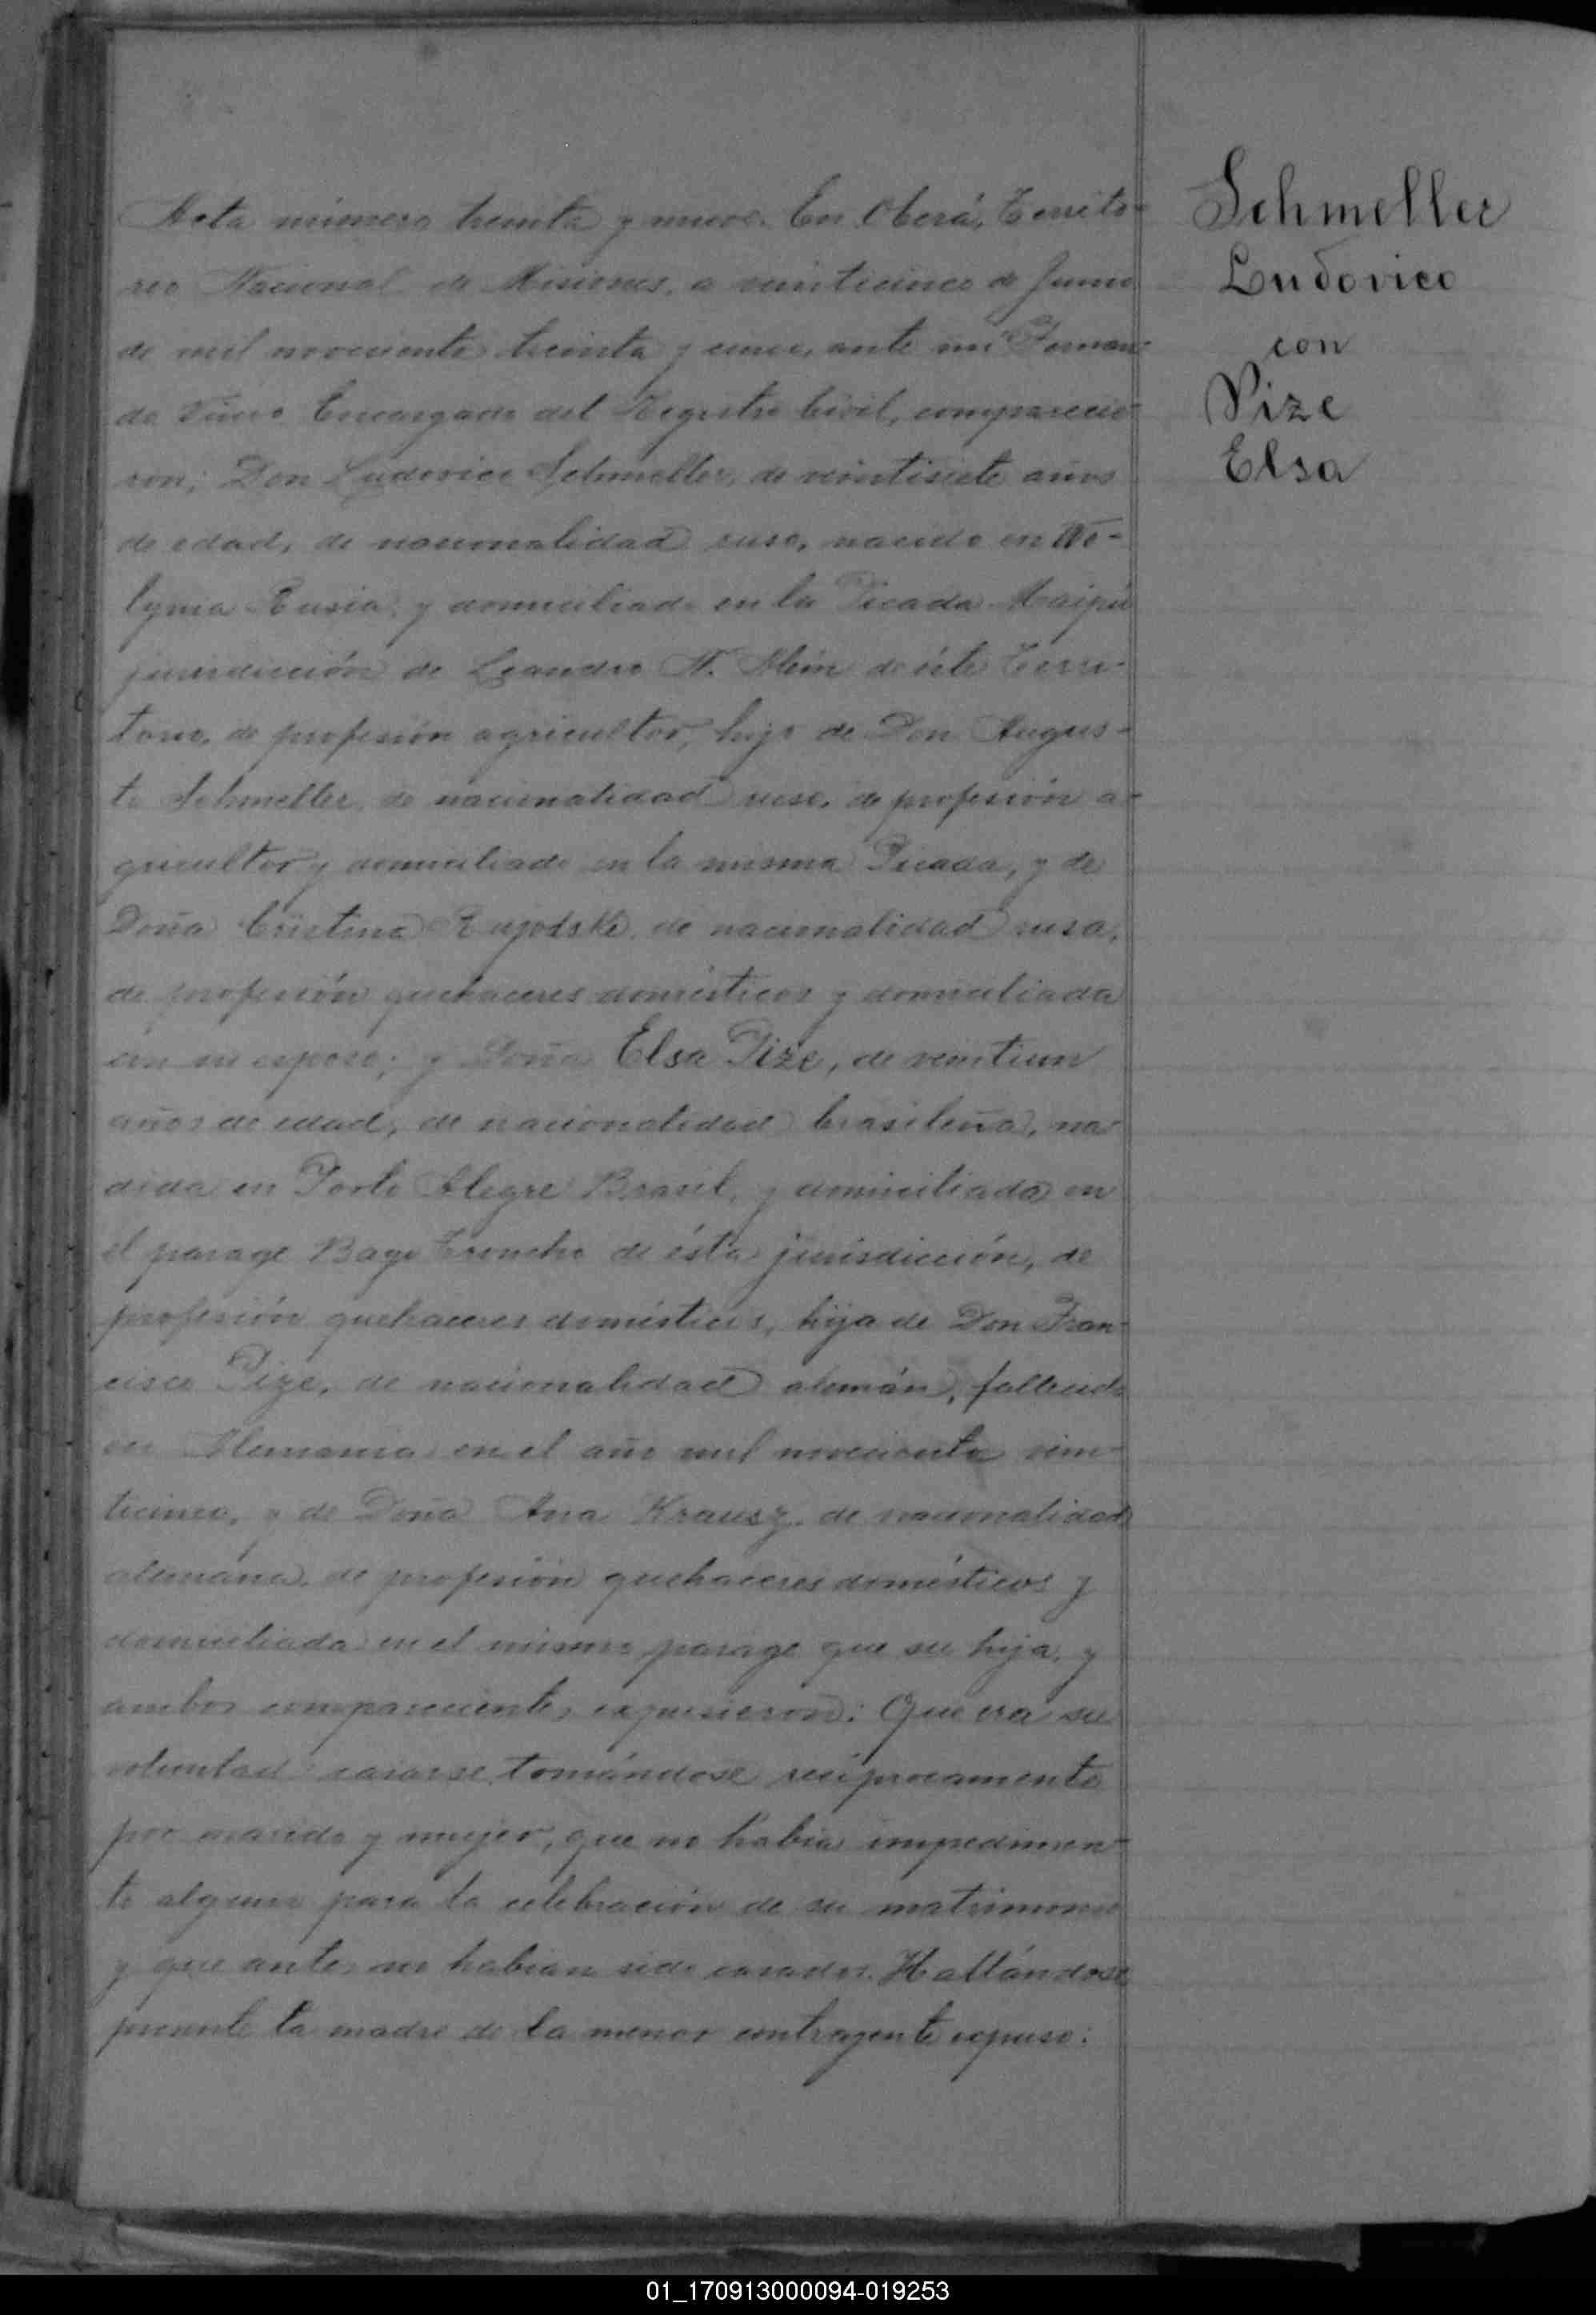 Acta número treinta y nueve. En Oberá, Territo-
rio Nacional de Misiones, a veinticinco de Junio
de mil novecientos treinta y cinco, ante mí Fernan-
do Encargado del Registro Civil, comparecie-
ron; Don Ludovico Schmeller, de veintisiete años
de edad, de nacionalidad ruso, nacido en Wo-
lynia Rusia, y domiciliado en la Picada Maipú
jurisdicción de Leandro N. Alem de éste Terri-
torio, de profesión agricultor, hijo de Don Augus-
to Schmeller, de nacionalidad ruso, de profesión a-
gricultor y domiciliado en la misma Picada, y de
Doña Cristina de nacionalidad rusa,
de profesión quehaceres domésticos y domiciliada
con su esposo; y Doña Elsa Pize, de veintiun
años de edad, de nacionalidad brasileña, na-
cida en Porto Alegre Brasil, y domiciliada en
el parage Bayo Troncho de ésta jurisdicción, de
profesión quehaceres domésticos, hija de Don Fran-
cisco Pize, de nacionalidad alemán, fallecido
en Alemania en el año mil novecientos vein-
ticinco, y de Doña Ana Krausz, de nacionalidad
alemana, de profesión quehaceres domésticos y
domiciliada en el mismo parage que su hija, y
ambos comparecientes expusieron: Que era su
voluntad casarse, tomándose reciprocamente
por marido y mujer, que no habia impedimen-
to alguno para la celebración de su matrimonio
y que antes no habian sido casados. Hallándose
presente la madre de la menor contrayente expuso:
Schmeller
Ludovico
con
Pize
Elsa
01_170913000094-019253